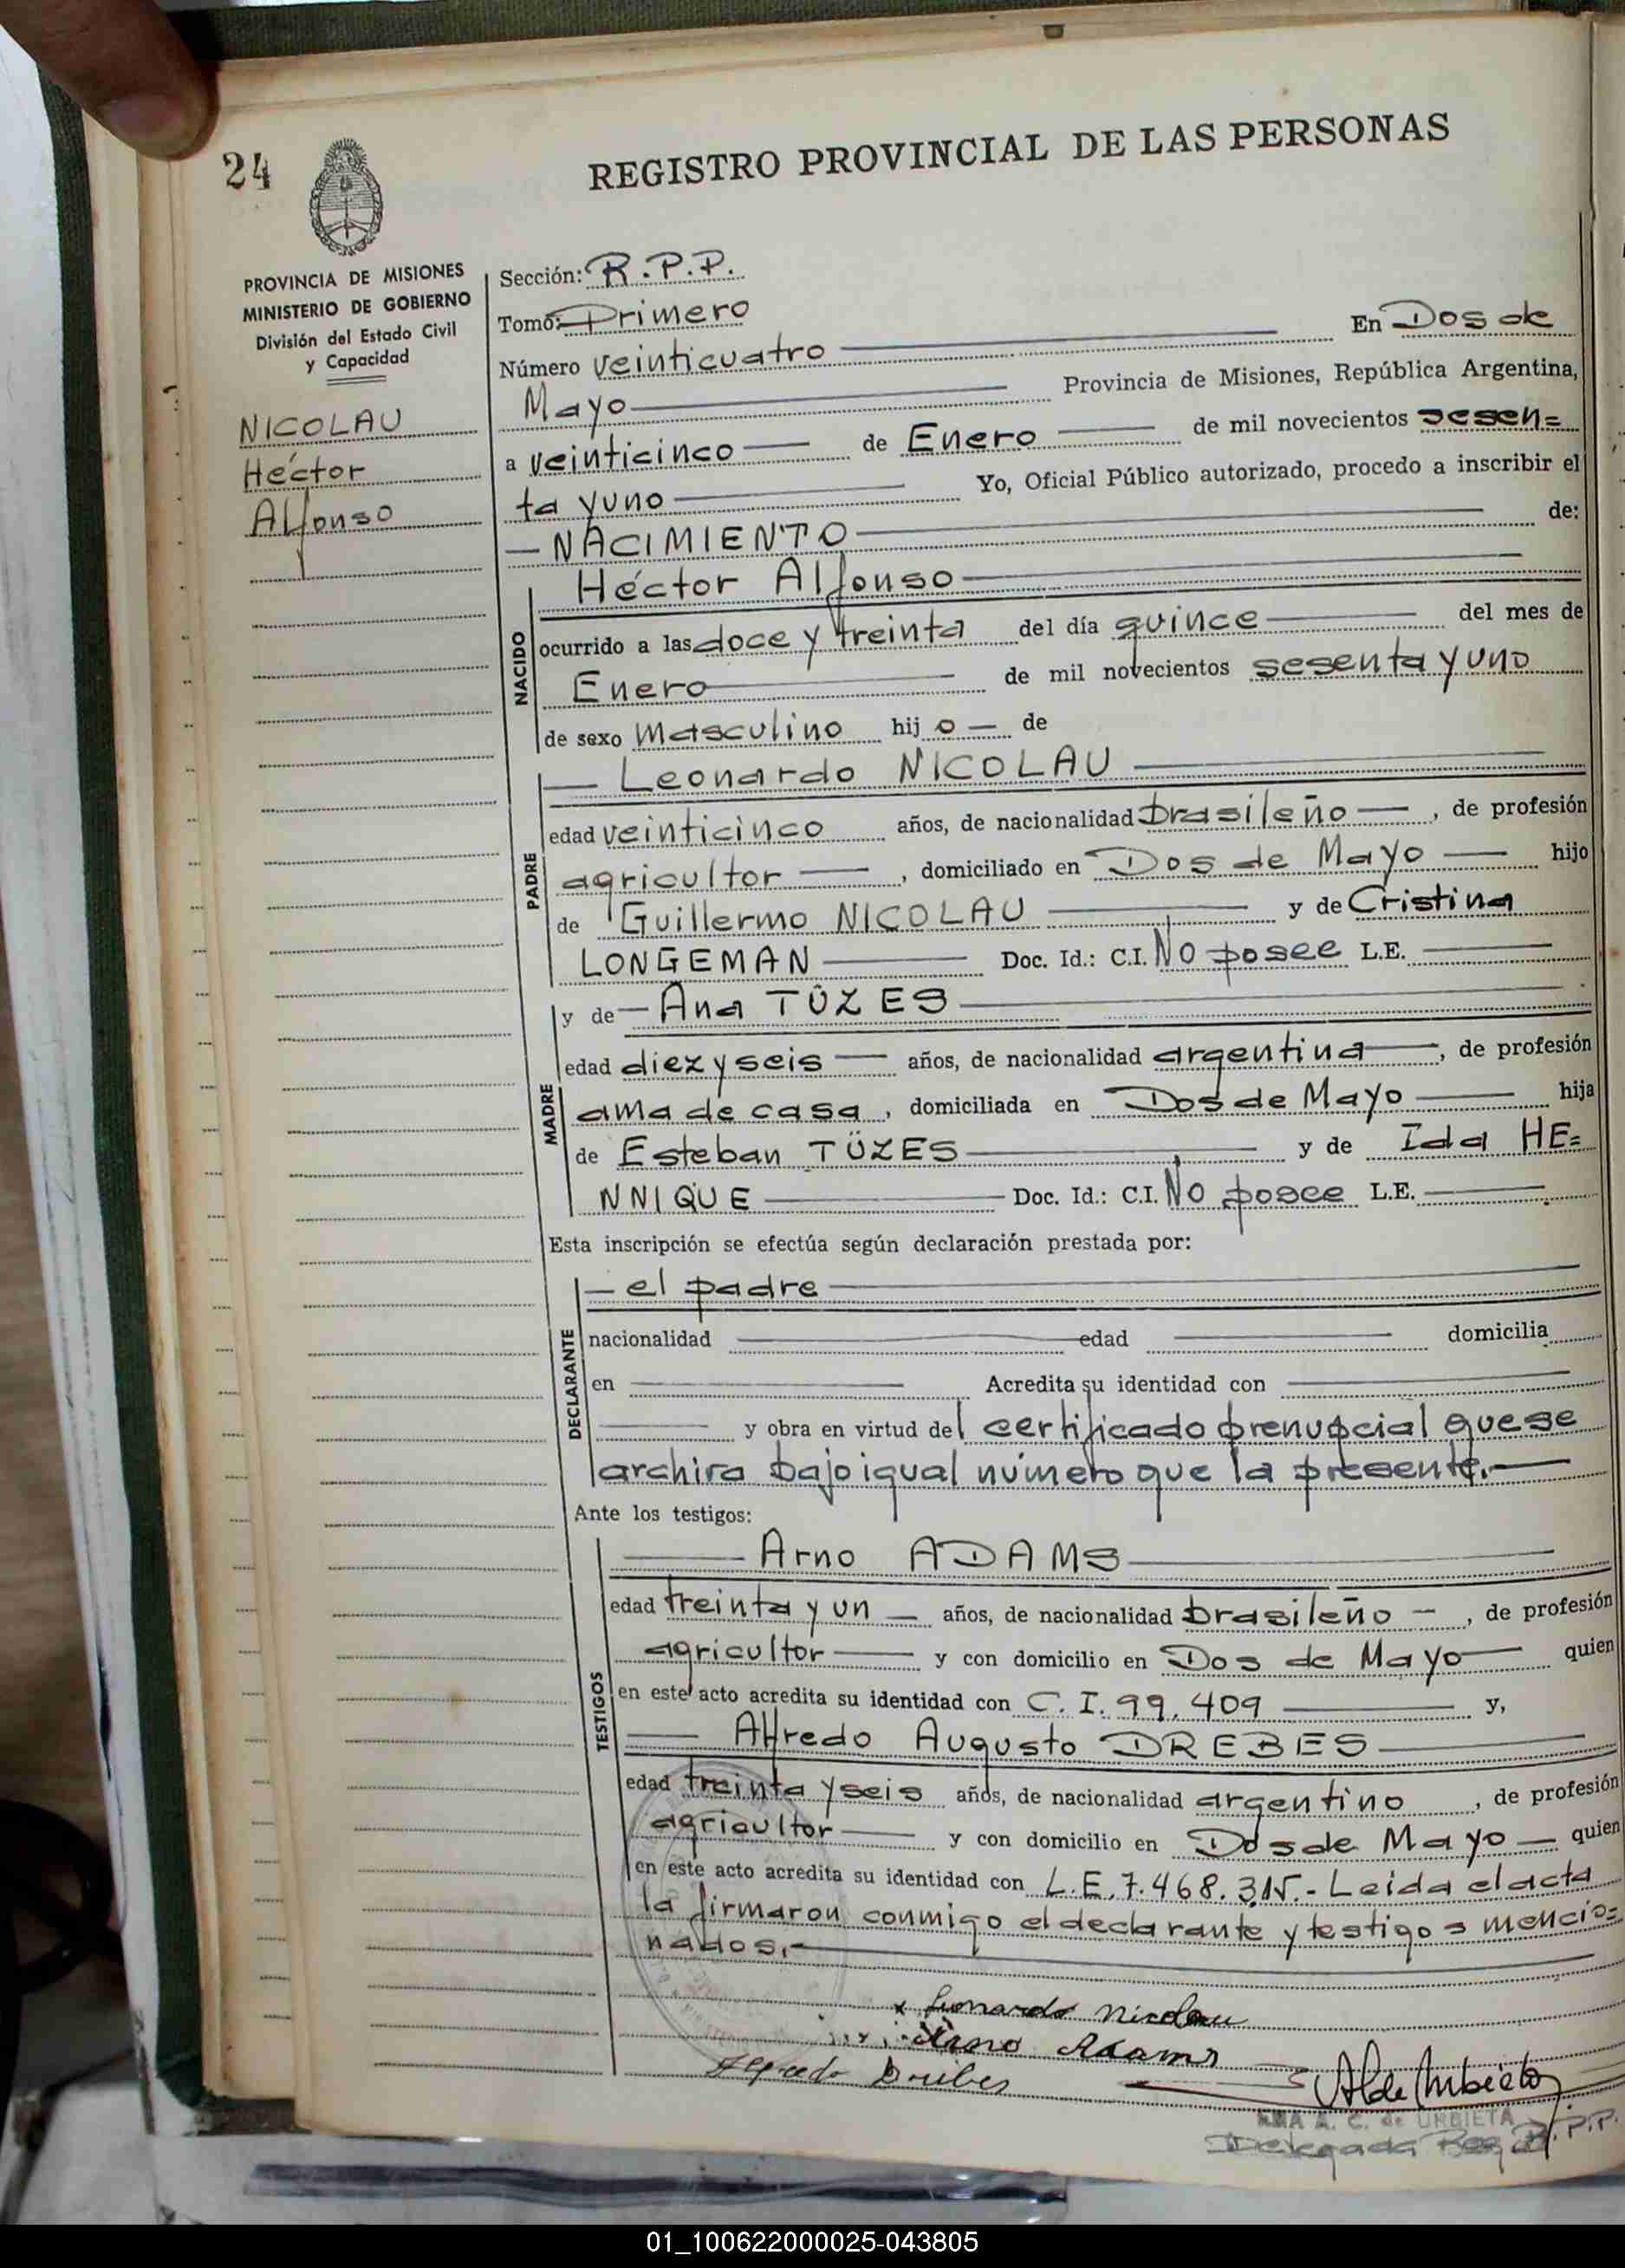 24
REGISTRO PROVINCIAL DE LAS PERSONAS
PROVINCIA DE MISIONES
MINISTERIO DE GOBIERNO
División del Estado Civil
y Capacidad
NICOLAU
Héctor
Alfonso
Sección: R.P.P.
Tomo: Primero
Número veinticuatro En Dos de
Mayo Provincia de Misiones, República Argentina,
a veinticinco de Enero de mil novecientos sesen=
ta y uno Yo, Oficial Público autorizado, procedo a inscribir el
NACIMIENTO de:
NACIDO
Héctor Alfonso
ocurrido a las doce y treinta del día quince del mes de
Enero de mil novecientos sesenta y uno
de sexo masculino hijo de
PADRE
Leonardo NICOLAU
edad veinticinco años, de nacionalidad brasileño, de profesión
agricultor, domiciliado en Dos de Mayo hijo
de Guillermo NICOLAU y de Cristina
LONGEMAN Doc. Id.: C.I. No posee L.E.
MADRE
y de Ana TÜZES
edad diez y seis años, de nacionalidad argentina, de profesión
ama de casa, domiciliada en Dos de Mayo hija
de Esteban TÜZES y de Ida HE=
NNIQUE Doc. Id.: C.I. No posee L.E.
Esta inscripción se efectúa según declaración prestada por:
DECLARANTE
el padre
nacionalidad edad domicilia
en Acredita su identidad con
y obra en virtud del certificado prenupcial que se
archiva bajo igual número que la presente.
Ante los testigos:
TESTIGOS
Arno ADAMS
edad treinta y un años, de nacionalidad brasileño, de profesión
agricultor y con domicilio en Dos de Mayo quien
en este acto acredita su identidad con C.I. 99.409 y,
Alfredo Augusto DREBES
edad treinta y seis años, de nacionalidad argentino, de profesión
agricultor y con domicilio en Dos de Mayo quien
en este acto acredita su identidad con L.E. 7.468.315.- Leida el acta
la firmaron conmigo el declarante y testigos mencio=
nados.-
x Leonardo Nicolau
Arno Adams
A. C. de URBIETA
Delegada R.P.P.
01_100622000025-043805